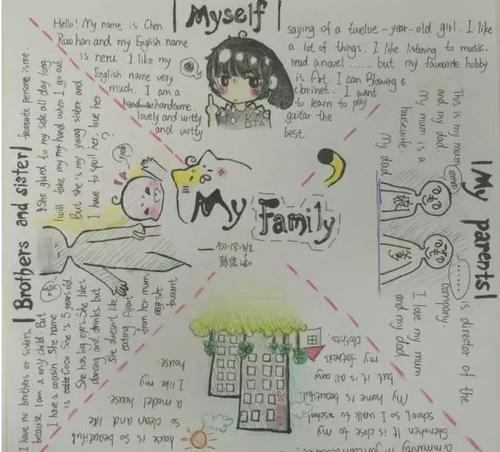 Myself
Hello! My name is Chen
Ruohan and my English name
is neru. I like my
English name very
much. I am a
handsome
lovely and witty
and witty
saying of a twelve-year-old girl. I like
a lot of things. I like listening to music.
read a novel ...... but my favourite hobby
is Art. I can
clarinet. I want
to learn to play
guitar the
best.
My Family
Brothers and sister
I have no brothers or sisters,
because I am a only child. But
I have a cousin. She name
is Coco She is 5 years old.
She has big eyes. She likes
dancing and drinks. but
She doesn't like
eating. Apart
from her mum,
she
favourite
favourite persone is me.
She glued to my side all day long
I will take my hand when I go out
But she is my young sister and
I have to spoil her, love her
My parents
This is my mum
and my dad.
My mum is a
housewife
My dad
......
is director of the
company
I love my mum
and my dad
house is so beautiful
so clean and like
a model house.
I like my
house.
community
Shenzhen It is close to my
school I walk to school
My home is beautiful
but it is all my
father's
clothes